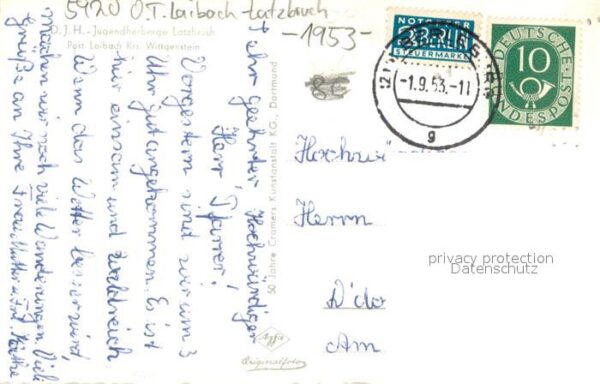 5920 O.T. Laibach-Latzbruch
-1953-
8€
D. J. H. - Jugendherberge Latzbruch
Post Laibach Krs. Wittgenstein
NOTOPFER
2 BERLIN
STEUERMARKE
-1.9.53.-11
g
DEUTSCHE
BUNDESPOST
10
Sehr geehrter Hochwürdiger
Herr Pfarrer!
Vorgestern sind wir um 3
Uhr gut angekommen. Es ist
hier einsam und waldreich
Wenn das Wetter besser wird,
machen wir noch viele Wanderungen. Viele
Grüße an Ihre Frau Mutter u. Frl. Käthe
50 Jahre Cramers Kunstanstalt KG., Dortmund
Agfa
Originalfoto
Hochwür
Herrn
Am
privacy protection
Datenschutz